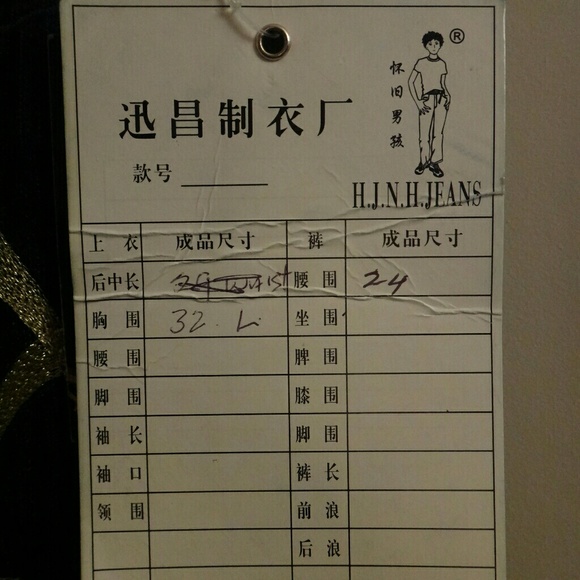 ®
怀旧男孩
迅昌制衣厂
款号
H.J.N.H.JEANS
上衣 成品尺寸 裤 成品尺寸
后中长 腰围 24
胸围 32. L. 坐围
腰围 脾围
脚围 膝围
袖长 脚围
袖口 裤长
领围 前浪
后浪